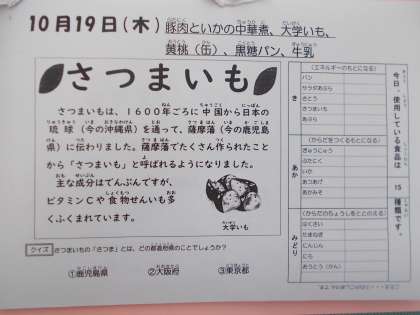 10月19日(木) 豚肉といかの中華煮、大学いも、
黄桃(缶)、黒糖パン、牛乳
さつまいも
さつまいもは、1600年ごろに中国から日本の
琉球(今の沖縄県)を通って、薩摩藩(今の鹿児島
県)に伝わりました。薩摩藩でたくさん作られたこと
から「さつまいも」と呼ばれるようになりました。
主な成分はでんぷんですが、
ビタミンCや食物せんいも多
くふくまれています。
大学いも
クイズ さつまいもの「さつま」とは、どの都道府県のことでしょうか?
①鹿児島県 ②大阪府 ③東京都
今日、使用している食品は 15 種類です。
き
(エネルギーのもとになる)
パン
サラダあぶら
さとう
さつまいも
あぶら
あか
(からだをつくるもとになる)
ぎゅうにゅう
ぶたにく
いか
あつあげ
あかみそ
みどり
(からだのちょうしをととのえる)
はくさい
たまねぎ
にんじん
にら
おうとう(かん)